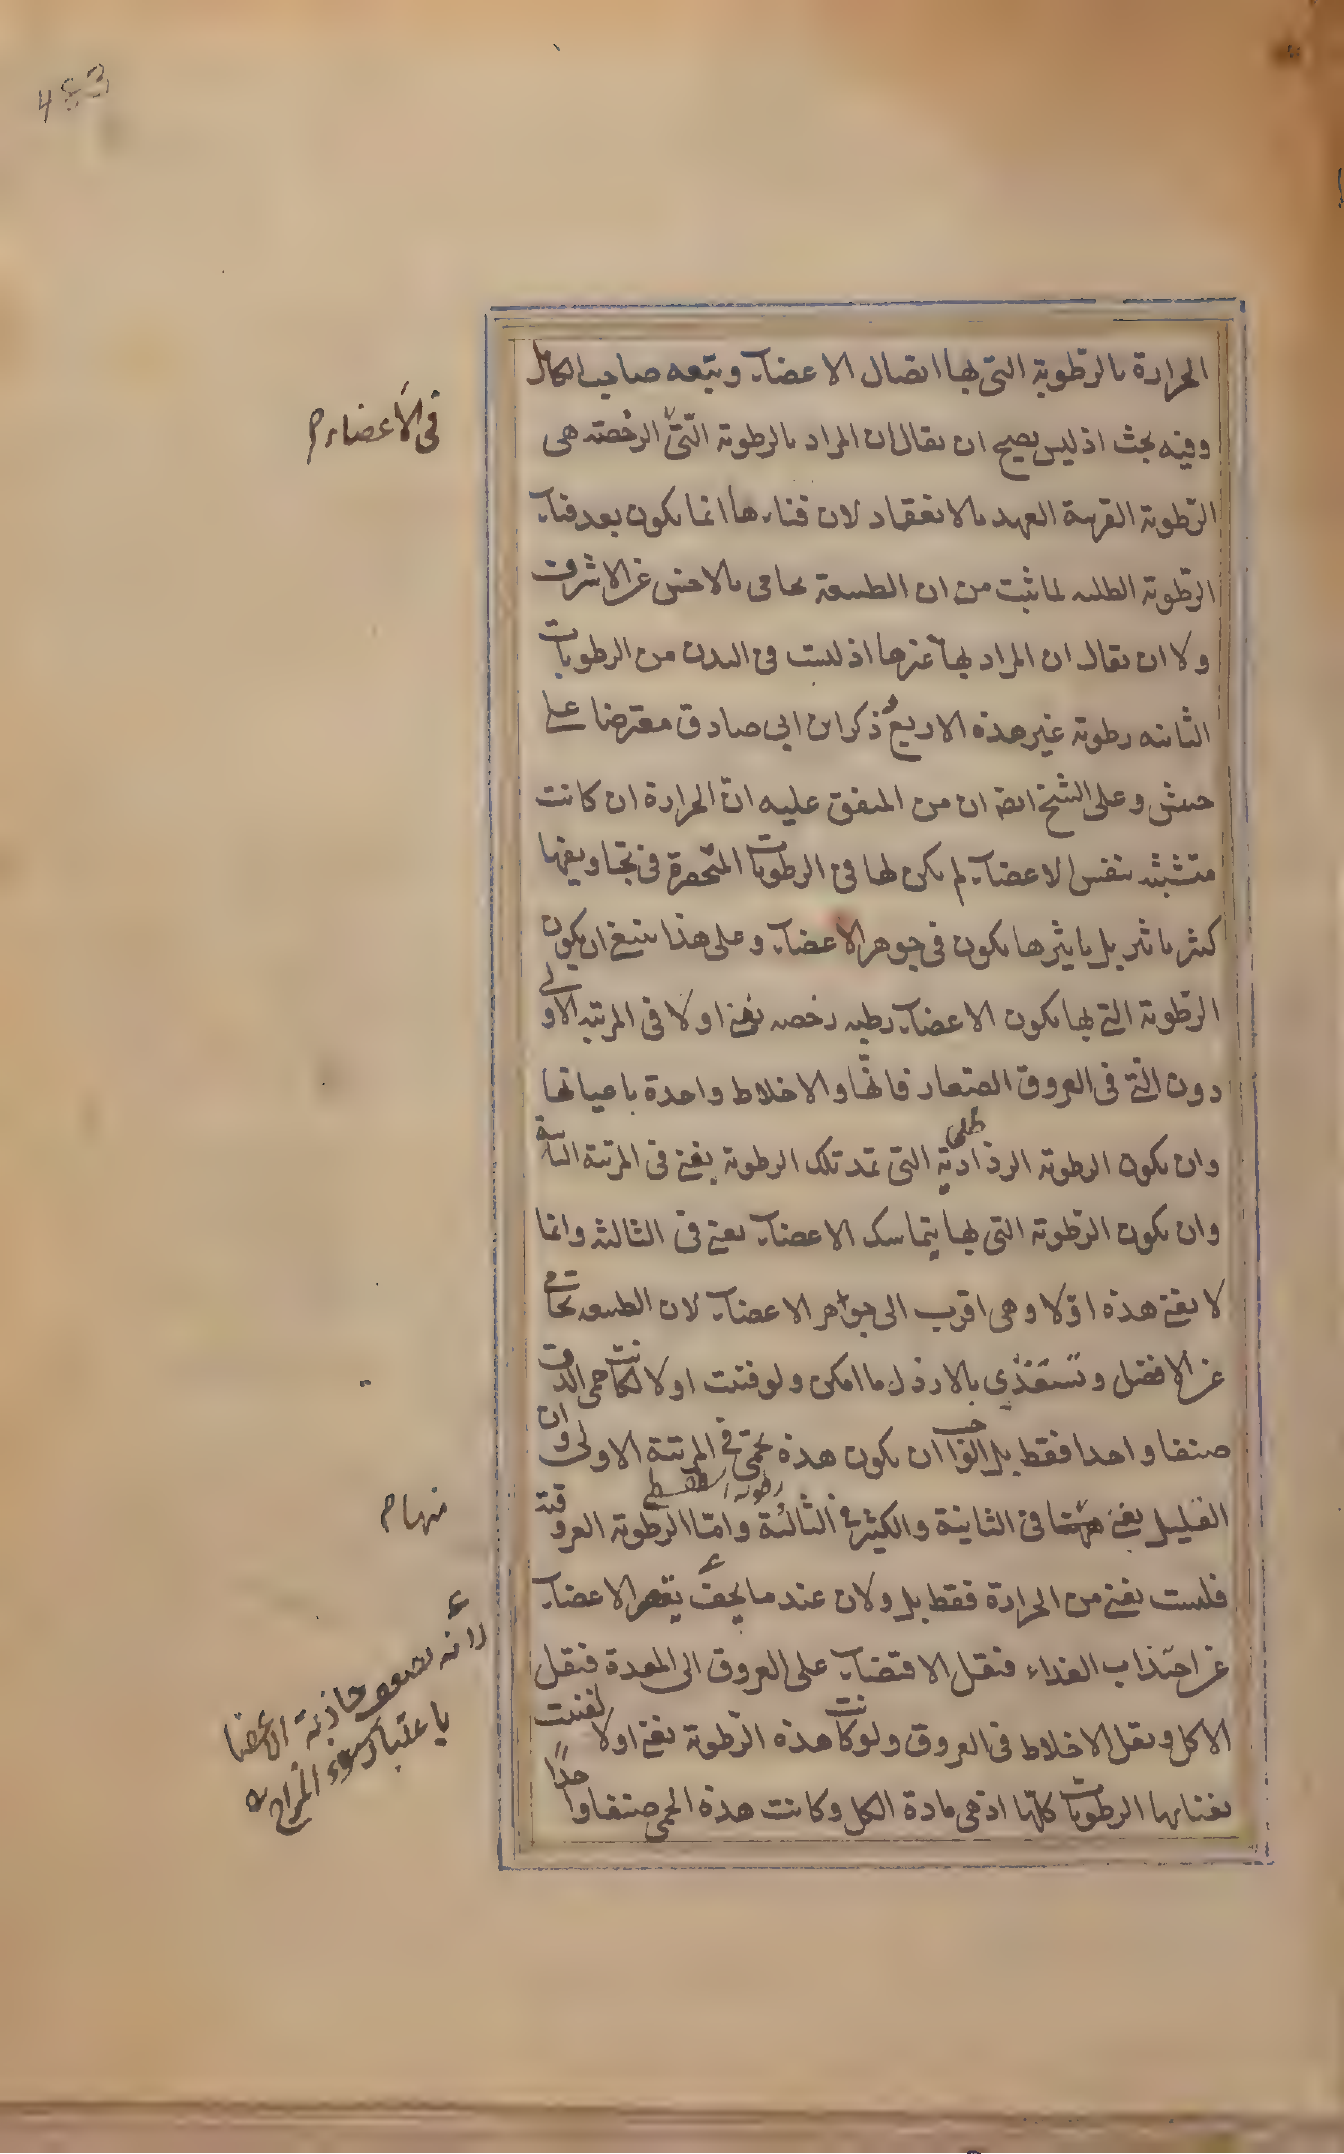 483
الحرارة بالرّطوبة التى بها اتصال الاعضاء وتبعه صاحب الكامل
وفيه بحث اذ ليس يصح ان يقال ان المراد بالرطوبة الّتى الرخصة هى
فى الاعضاء م
الرّطوبة القريبة العهد بالانعقاد لان فناءها انما يكون بعد فناء
الرّطوبة الطلية لما ثبت من ان الطبيعة تحامى بالاخس عن الاشرف
ولا ان يقال ان المراد بها غيرها اذ ليست فى البدن من الرطوبات
الثانية رطوبة غير هذه الاربع ذكر ابن ابى صادق معترضا على
حبيش وعلى الشيخ ايضا ان من المتفق عليه انّ الحرارة ان كانت
متشبثة بنفس الاعضاء لم يكن لها فى الرطوبات فى تجاويفها
كثير تاثير بل تاثيرها يكون فى جوهر الاعضاء وعلى هذا ينبغى ان يكون
الرّطوبة التى بها يكون الاعضاء رطبة رخصة تفنى اولا فى المرتبة الاولى
دون الّتى فى العروق الصغار فانّها والاخلاط واحدة باعيانها
وان يكون الرطوبة الرذاذية التى تمد تلك الرطوبة يفنى فى المرتبة الثانية
وان يكون الرّطوبة التى بها يتماسك الاعضاء يفنى فى الثالثة وانما
لا يفنى هذه اوّلا وهى اقرب الى جواهر الاعضاء لان الطبيعة تحامى
عن الافضل وتستغذى بالارذل ما امكن ولو فنيت اولا لكانت حمى الدق
صنفا واحدا فقط بل الواجب ان يكون هذه فى المرتبة الاولى وان
القليل يفنى فى الثانية والكثير فى الثالثة وامّا الرّطوبة العروقية
منها م
فليست يفنى من الحرارة فقط بل ولان عند ما يجفّ الاعضاء
عن اجتذاب الغذاء فيقل الاقتضاء على العروق الى المعدة فيقل
لانه يضعف جاذبة الاعضا
باعتبار سوء المزاج
الاكل ويقل الاخلاط فى العروق ولو كانت هذه الرّطوبة يفنى اولا لفنيت
بفنايها الرطوبات كلّها اذ هى مادة الكل وكانت هذه الحمى صنفا واحدًا